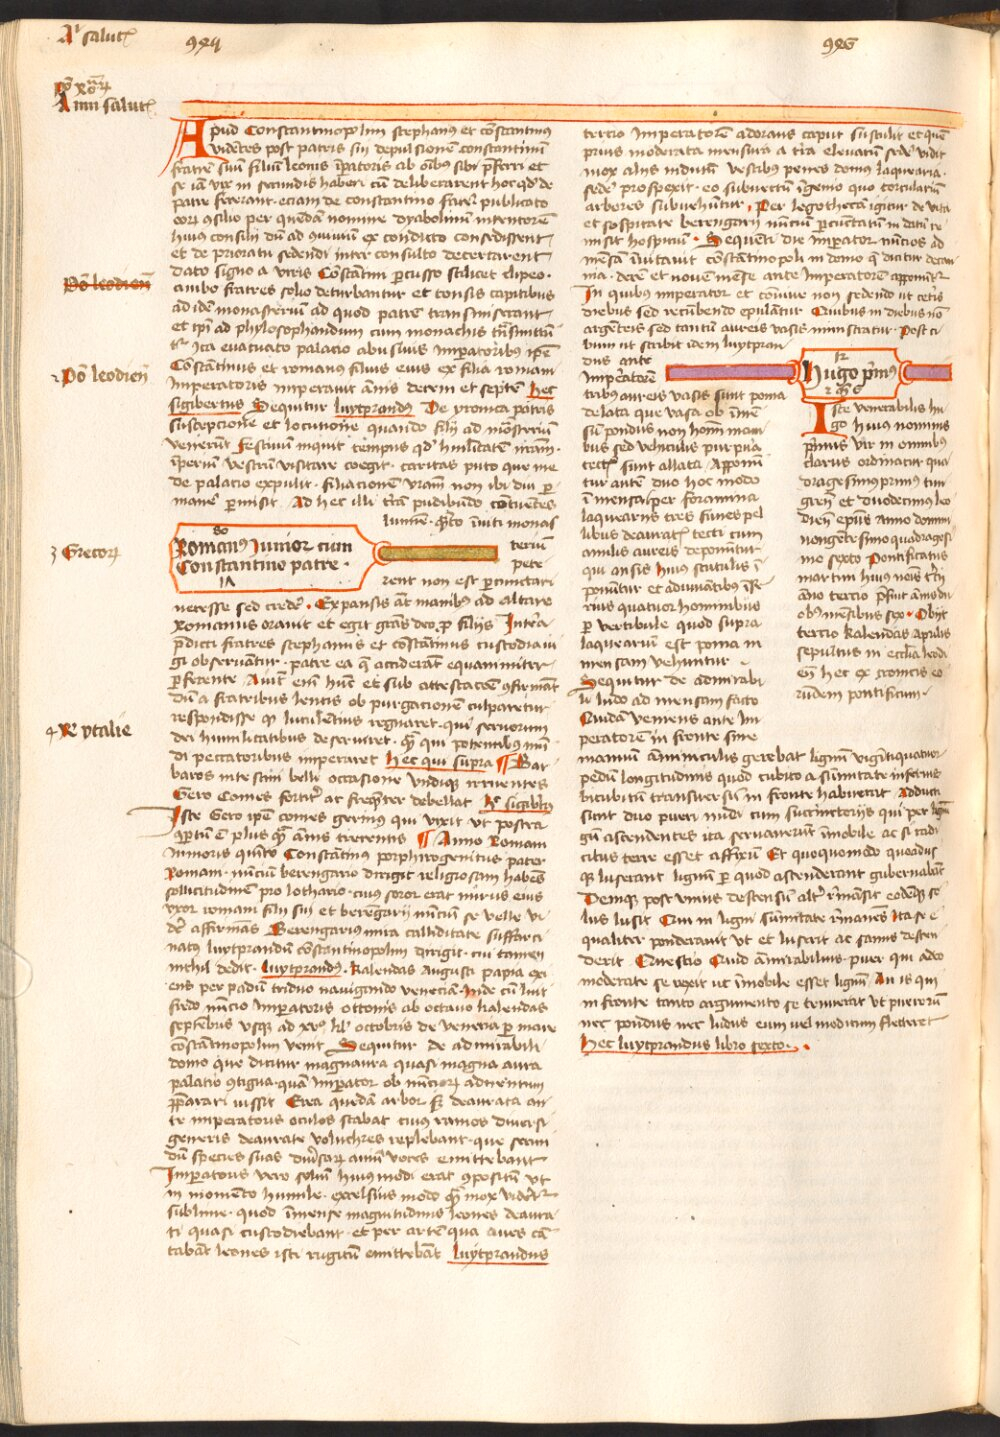 Aᵢ salutꝭ
994
996
Anni salutꝭ
Apud Constantinopolim stephanus et cōstantinus
vidētes post patris sui depulsionem constantinum
fratrē suū filiū leonis īpatoris ab oībus sibi p̄ferri et
se iā vix in secundis haberi cū deliberarent hoc qd' de
patre fecerant eciam de constantino facē publicato
eorū ɔsilio per quēdā nomine dyabolinū intentorē
huius consilii dū ad ɔuiuiū ex condicto consedissent
et de prioratu sedendi inter consulto decertarent
dato signo a viris Cōstātini percusso scilicet clipeo
ambo fratres solio deturbantur et tonsis capitibus
ad idē monasteriū ad quod patrē transmiserant
et ip̄i ad phylosophandum cum monachis trāsmittū
tr̄ Ita euacuato palacio abusiuis imperatoribus ip̄e
Cōstātinus et romanus filius eius ex filia romani
imperatoris imperauit ānis decem et septē hec
sigibertus Sequitur luytprandus De yronica patris
suscepcione et locutione quando filij ad mōsteriū
venerūt festiuū inquit tempus qd' humilitatē nr̄am
īperiū vestrū visitare coegit caritas puto que me
de palacio expulit filiacionē vr̄am non ibi diu per
manē permisit Ad hec illi trā pudibūdo cōtuētes
lumine q̄to īuiti monas
Romanus Iunior cum
Constantino patre
terium
pete
rent non est percunctari
necesse sed credē Expansis āt manibus ad altare
Romanus orauit et egit grās deo pro filijs Interea
p̄dicti fratres stephanus et cōstātinus custodiaui
gi obseruātur patre ea q̄ acciderāt equanimiter
perferente Aiūt enī hūc et sub attestacōe ɔfirmāt
dū a fratribus lentis ob purgacionē culparetur
respondisse qꝫ luculentius regnaret qui seruorum
dei humilitatibus deseruiret q̄ qui potentibus mū
di peccatoribus imperaret hec qui supra Bar
baros intestini belli occasione vndique irruentes
Gero Comes fortit' ac freq̄nter debellat hꝰ sigibtus
Iste Gero ip̄e comes gerinus qui vixit vt postea
apertū ē plus q̄ annis trecentis Anno Romani
iunioris quīto Constātinus porphirogenitus pater
Romani nūciū berengario dirigit religiosam habēs
sollicitudinē pro lothario cuius soror erat nurus eius
vxor romani filij sui et berēgarij nūciū se velle vi
dē affirmās Berengarius mira calliditate suffarci
nata luytprandū cōstantinopolim dirigit cui tamen
nichil dedit luytprandus Kalendas Augusti papia exi
ens per padū triduo nauigando veneciā Inde cū luit
fredo nūcio imperatoris ottonis ab octauo kalendas
septēbris vsque ad xvᵒ kl' octobris de venecia per mare
cōstantinopolim venit Sequitur de admirabili
domo que dicitur magnaura quasi magna aura
palatio ɔtigua quā imperator ob nūciorum aduentum
preparari iussit Erea quedā arbor sꝫ deaurata an
te imperatoris oculos stabat cuius ramos diuersi
generis deaurate volucres replebant que secun
dū species suas diuersarum auiū voces emittebant
Imperatoris vero soliū huiusmodi erat ɔpositū vt
in momēto humile excelsius modo q̄ mox videretur
sublime quod īmense magnitudinis leones deaura
ti quasi custodiebant et per artē qua aues cā
tabāt leones isti rugitū emittebāt luytprandus
tercio imperatorē adorans caput sustulit et quē
prius moderata mensura a tr̄a eleuatū sedē vidit
mox alijs indutū vestibus penes domus laquearia
sedē prospexit eo subuectū īgenio quo torcularium
arbores subuehūtur Per legothetā igitur de vita
et sospitate berengarij nūciū percūctatū in datū re
misit hospiciū Sequēti die imperator nūcios ad
mēsā īuitauit cōstātinopoli in domo q̄ dicitur decan
nia decē et nouē mēse ante imperatorē apponūtr
In quibus imperator et conuiue non sedendo vt cetis
diebus sed recūbendo epulātur Cuibus in diebus nō
argēteis sed tantū aureis vasis ministratur Post ci
bum vt scribit idem luytpran
dus ante
imperatorē
tribus aureis vasis sunt poma
delata que vasa ob īmēsū
sū pondus non homī mani
bus sed vehiculis purpura
tectis sunt allata Apponū
tur autē duo hoc modo
ī mensa per foramina
laquearis tres funes pel
libus deauratis tecti cum
anulis aureis deponūtur
qui ansis huius scutulis ī
ponūtur et adiuuātibus īfe
rius quatuor hominibus
per vertibule quod supra
laquearium est poma in
mensam vehuntur
Sequitur de admirabi
li ludo ad mensam facto
Quidā veniens ante im
peratorē in fronte sine
manuū āminiculis gerebat lignū vigītiquatuor
pedū longitudinis quod cubito a sūmitate inferius
bicubitū transuersū in fronte habuerat Adducti
sunt duo pueri nudi cum succinctorijs qui per lignū
gn̄ ascendentes ita seruauerūt īmobile ac si radi
citus terre esset affixū Et quoquomodo quoadus
que luserant lignū per quod ascenderant gubernabāt
Demque post vnius descensū alter remāsit eodēque so
lus lusit Cum in ligni sūmitate remanēs Ita se e
qualiter ponderauit vt et luserit ac sanus descen
derit Questio Quid āmirabilius puer qui adeo
moderate se vexit vt īmobile esset lignū An is qui
in fronte tanto argumento se tenuerat vt puerorū
nec pondus nec ludus eum vel modicum flecteret
Hec luytprandus libro sexto
Hugo p̄mus
Iste venerabilis hu
go huius nominis
primus vir in omnibus
clarus ordinatur qua
dragesimusprimus tun
gren et duodecimus leo
dieñ ep̄us Anno domini
nongētesimo quadragesi
mo sexto Pontificatus
martini huius noīs tercij
āno tercio p̄fuit ānis duo
obus mensibus sex Obijt
tercio kalendas Aprilis
sepultus in ecclīa leodi
eñ hec ex cronicis eo
rūdem pontificum
2 Pō leodieñ
3 Grecorum
4 Re ytalie